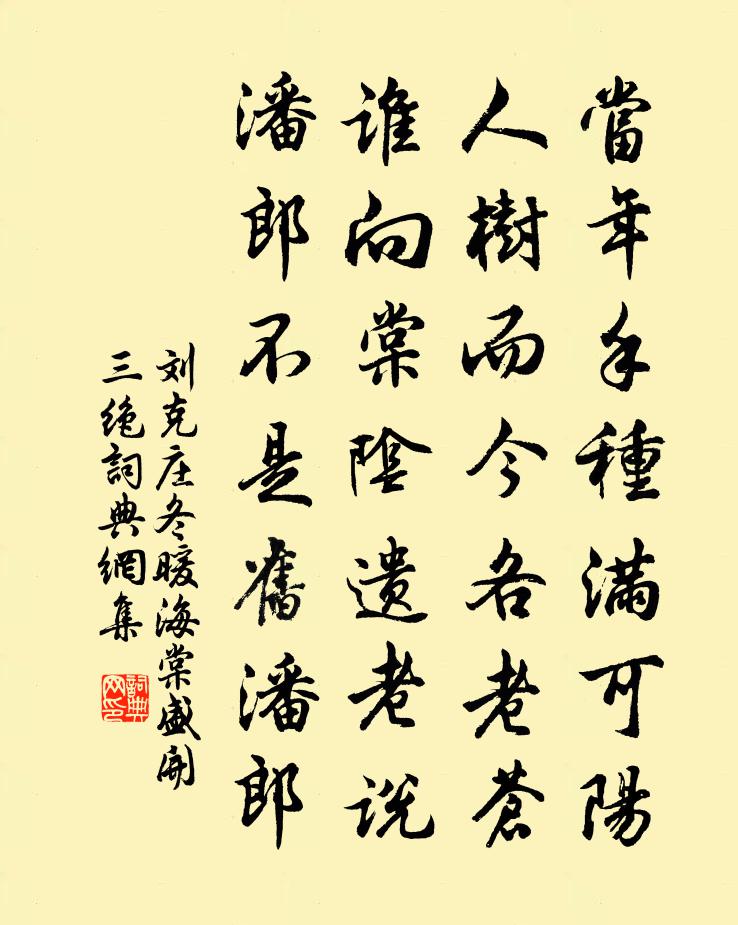 當年手種滿河陽
人樹而今各老蒼
誰向棠陰遺老説
潘郎不是舊潘郎
刘克庄冬暖海棠盛開
三绝詞典網集
詞典
网印